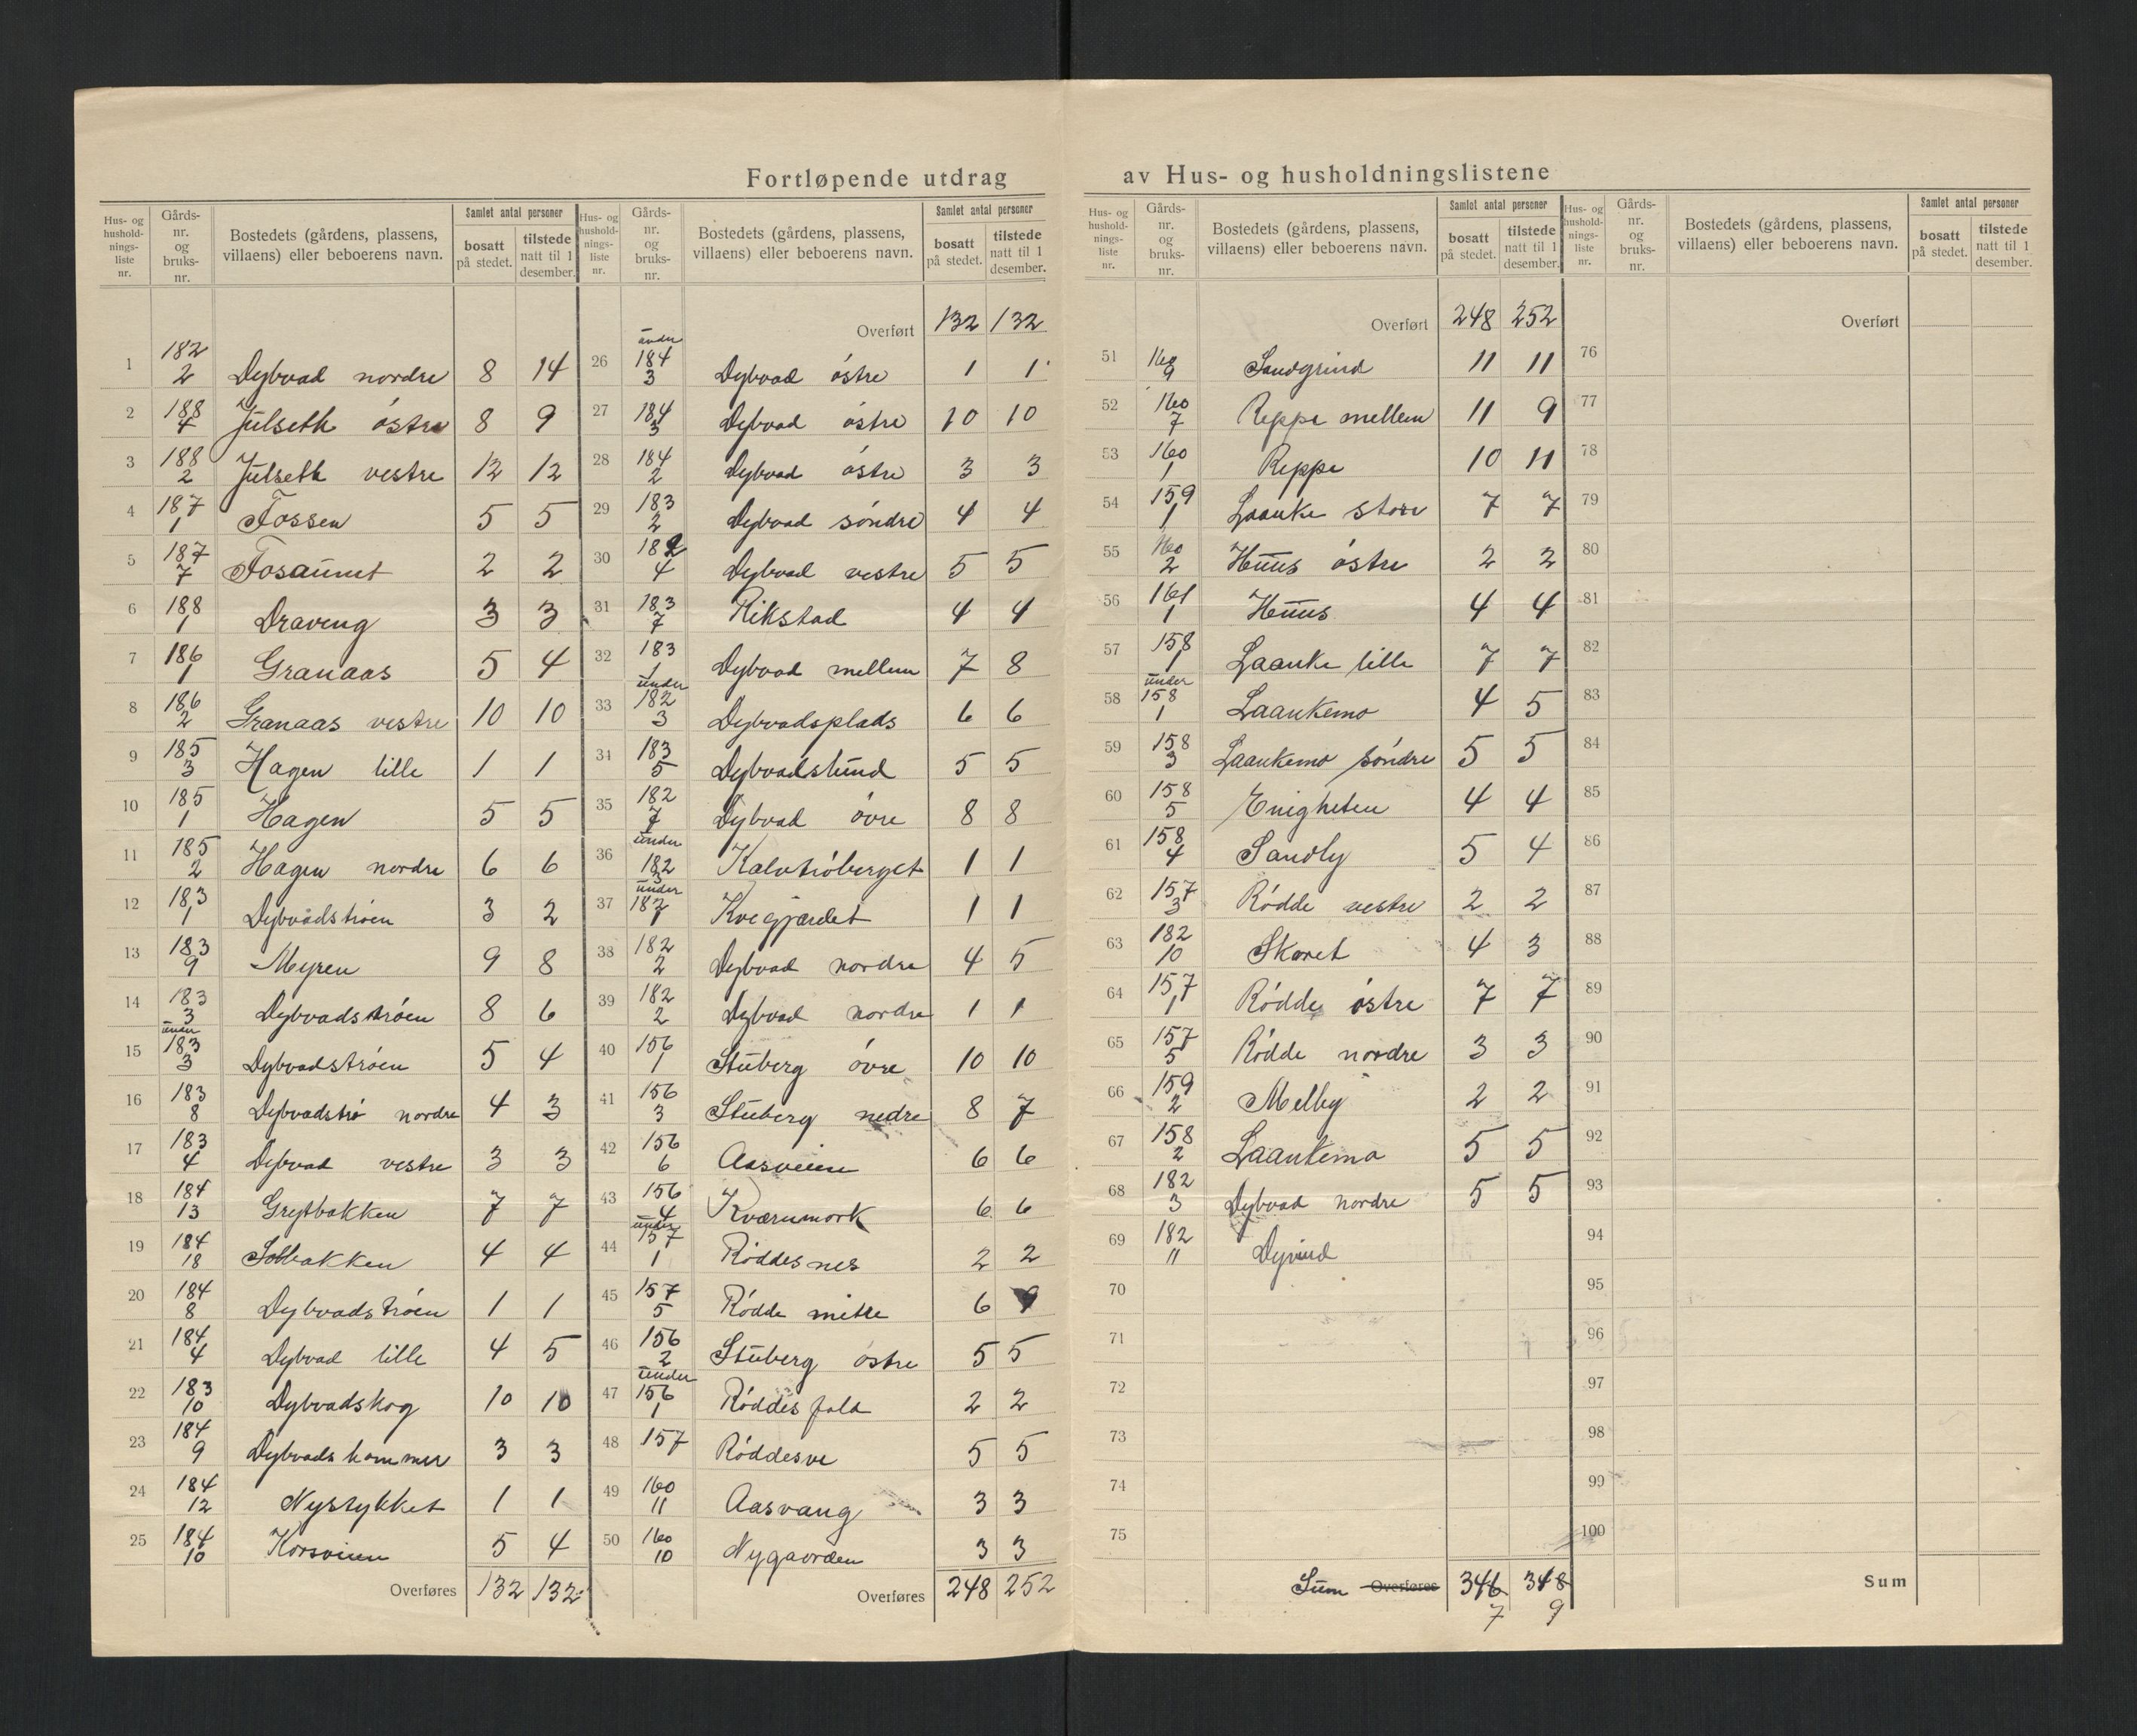 Fortløpende utdrag av Hus- og husholdningslistene
Hus- og hushold- nings- liste nr. | Gårds- nr. og bruks- nr. | Bostedets (gårdens, plassens, villaens) eller beboerens navn. | Samlet antal personer | bosatt på stedet. | tilstede natt til 1 desember.
1 182 2 Dybvad nordre 8 14
2 188 4 Julseth østre 8 9
3 188 2 Julseth vestre 12 12
4 187 1 Fossen 5 5
5 187 7 Fosaunet 2 2
6 188 1 Draveng 3 3
7 186 1 Granaas 5 4
8 186 2 Granaas vestre 10 10
9 185 3 Hagen lille 1 1
10 185 1 Hagen 5 5
11 185 2 Hagen nordre 6 6
12 183 1 Dybvadstrøen 3 2
13 183 9 Myren 9 8
14 183 3 Dybvadstrøen 8 6
15 under 183 3 Dybvadstrøen 5 4
16 183 8 Dybvadstrø nordre 4 3
17 183 4 Dybvad vestre 3 3
18 184 13 Greftbakken 7 7
19 184 18 Solbakken 4 4
20 184 8 Dybvadstrøen 1 1
21 184 4 Dybvad lille 4 5
22 183 10 Dybvadskog 10 10
23 184 9 Dybvadshammer 3 3
24 184 12 Nystykket 1 1
25 184 10 Korsveien 5 4
Overføres 132 132
Hus- og hushold- nings- liste nr. | Gårds- nr. og bruks- nr. | Bostedets (gårdens, plassens, villaens) eller beboerens navn. | Samlet antal personer | bosatt på stedet. | tilstede natt til 1 desember.
Overført 132 132
26 under 184 3 Dybvad østre 1 1
27 184 3 Dybvad østre 10 10
28 184 2 Dybvad østre 3 3
29 183 2 Dybvad søndre 4 4
30 182 4 Dybvad vestre 5 5
31 183 7 Rikstad 4 4
32 183 1 Dybvad mellem 7 8
33 under 182 3 Dybvadsplads 6 6
34 183 5 Dybvadslund 5 5
35 182 7 Dybvad øvre 8 8
36 under 182 3 Kalvtrøberget 1 1
37 under 182 1 Kvegjærdet 1 1
38 182 2 Dybvad nordre 4 5
39 182 2 Dybvad nordre 1 1
40 156 1 Stuberg øvre 10 10
41 156 3 Stuberg nedre 8 7
42 156 6 Aasveien 6 6
43 156 4 Kværnmork 6 6
44 under 157 1 Røddesnes 2 2
45 157 5 Rødde mitle 6 9
46 156 2 Stuberg østre 5 5
47 under 156 1 Røddesfald 2 2
48 157 Røddesve 5 5
49 160 11 Aasvang 3 3
50 160 10 Nygaarden 3 3
Overføres 248 252
Hus- og hushold- nings- liste nr. | Gårds- nr. og bruks- nr. | Bostedets (gårdens, plassens, villaens) eller beboerens navn. | Samlet antal personer | bosatt på stedet. | tilstede natt til 1 desember.
Overført 248 252
51 160 9 Sandgrind 11 11
52 160 7 Reppe mellem 11 9
53 160 1 Reppe 10 11
54 159 1 Laanke store 7 7
55 160 2 Huus østre 2 2
56 161 1 Huus 4 4
57 158 1 Laanke lille 7 7
58 under 158 1 Laankemo 4 5
59 158 3 Laankemo søndre 5 5
60 158 5 Enigheten 4 4
61 158 4 Sandly 5 4
62 157 3 Rødde vestre 2 2
63 182 10 Skaret 4 3
64 157 1 Rødde østre 7 7
65 157 5 Rødde nordre 3 3
66 159 2 Melby 2 2
67 158 2 Laankemo 5 5
68 182 3 Dybvad nordre 5 5
69 182 11 Dyrind
70
71
72
73
74
75
Sum Overføres 346 348
7 9
Hus- og hushold- nings- liste nr. | Gårds- nr. og bruks- nr. | Bostedets (gårdens, plassens, villaens) eller beboerens navn. | Samlet antal personer | bosatt på stedet. | tilstede natt til 1 desember.
Overført
76
77
78
79
80
81
82
83
84
85
86
87
88
89
90
91
92
93
94
95
96
97
98
99
100
Sum